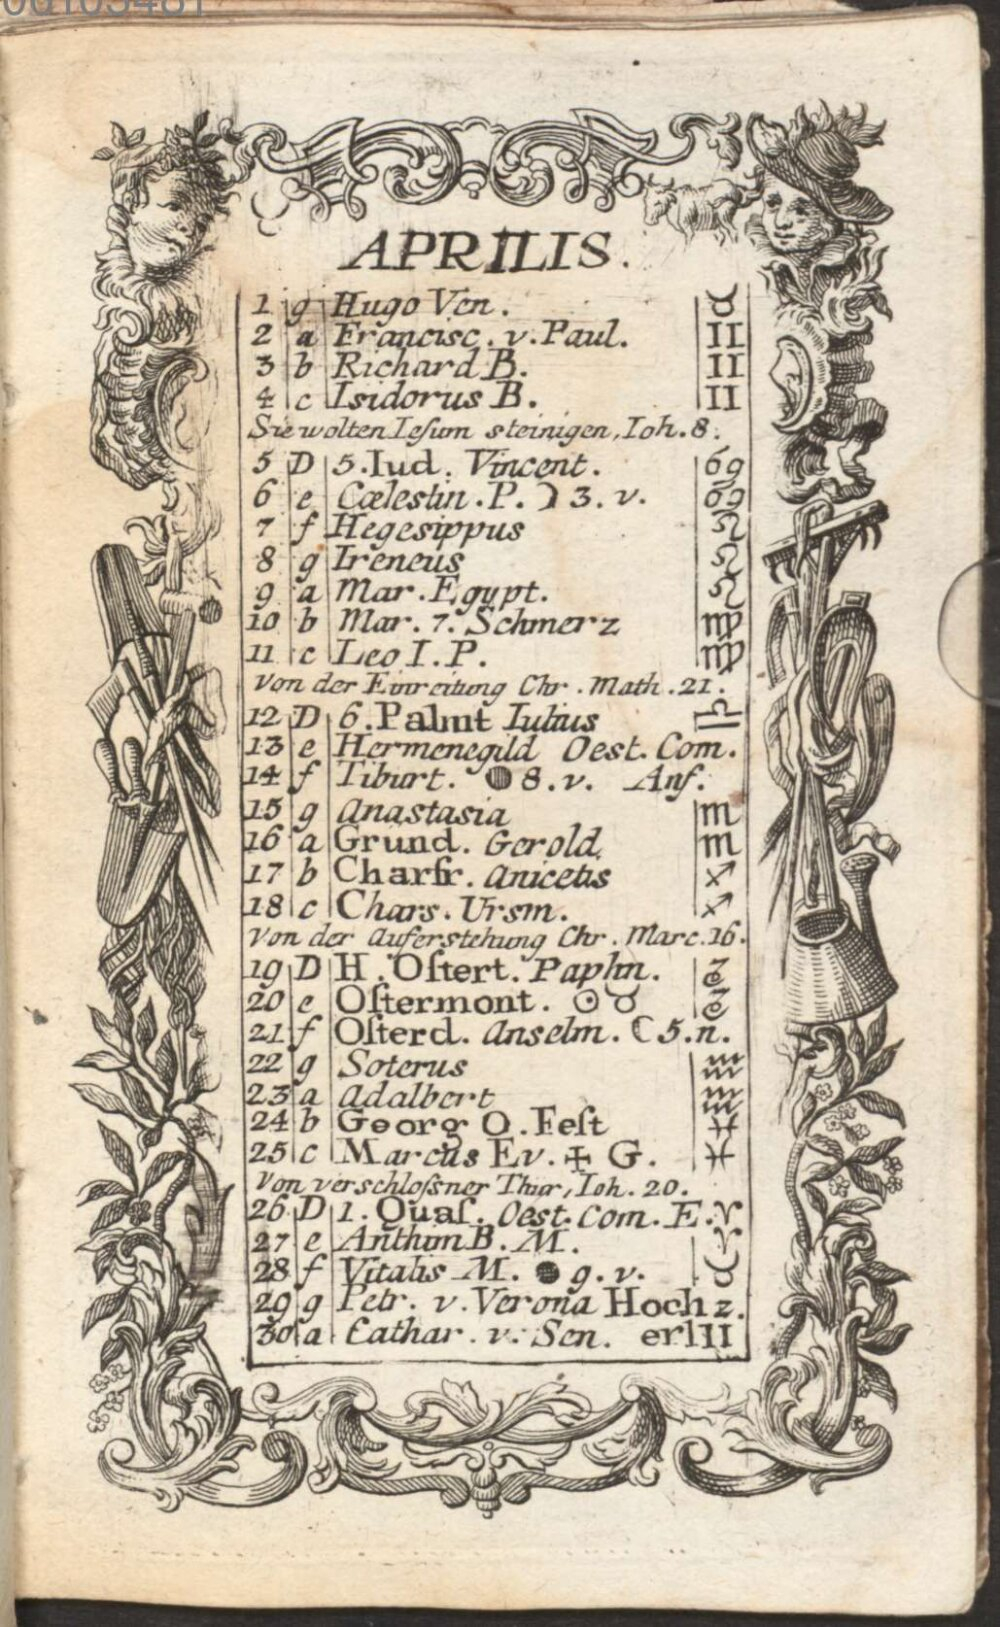 APRILIS.
1 g Hugo Ven. ♉
2 a Francisc. v. Paul. II
3 b Richard B. II
4 c Isidorus B. II
Sie wolten Iesum steinigen, Ioh. 8.
5 D 5. Iud. Vincent. ♋
6 e Cælestin. P. ☽ 3. v. ♋
7 f Hegesippus ♌
8 g Ireneus ♌
9 a Mar. Egypt. ♌
10 b Mar. 7. Schmerz ♍
11 c Leo I. P. ♍
Von der Einreitung Chr. Math. 21.
12 D 6. Palmt Iulius ♎
13 e Hermenegild Oest. Com.
14 f Tiburt. 8. v. Anf.
15 g Anastasia ♏
16 a Gründ. Gerold. ♏
17 b Charfr. Anicetus ♐
18 c Chars. Ursm. ♐
Von der Auferstehung Chr. Marc. 16.
19 D H. Oſtert. Paphn. ♑
20 e Oſtermont. ☉ ♉ ♑
21 f Oſterd. Anselm. ☾ 5. n.
22 g Soterus ♒
23 a Adalbert ♒
24 b Georg O. Feſt ♓
25 c Marcus Ev. ✠ G. ♓
Von verschloſsner Thür, Ioh. 20.
26 D 1. Quaſ. Oest. Com. E. ♈
27 e Anthim B. M. ♈
28 f Vitalis M. ● 9. v. ♉
29 g Petr. v. Verona Hochz.
30 a Cathar. v. Sen. erl II